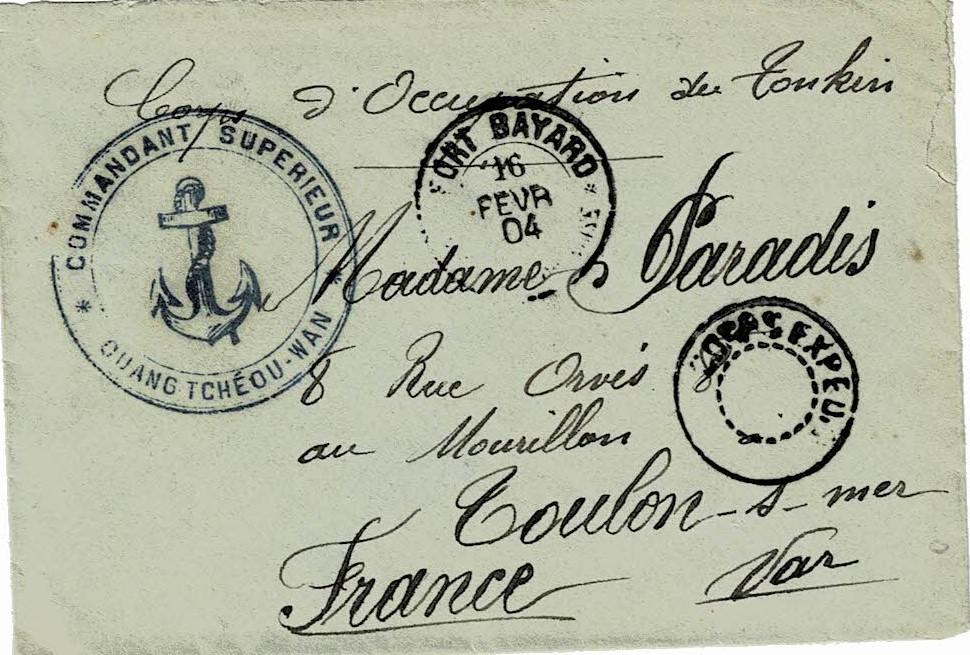 Corps d'Occupation du Tonkin
COMMANDANT SUPERIEUR
* QUANG TCHÉOU-WAN *
FORT BAYARD
16
FEVR
04
Madame Paradis
8 Rue Orvès 8
CORPS EXPED.
au Mourillon
Toulon-s-mer
France Var